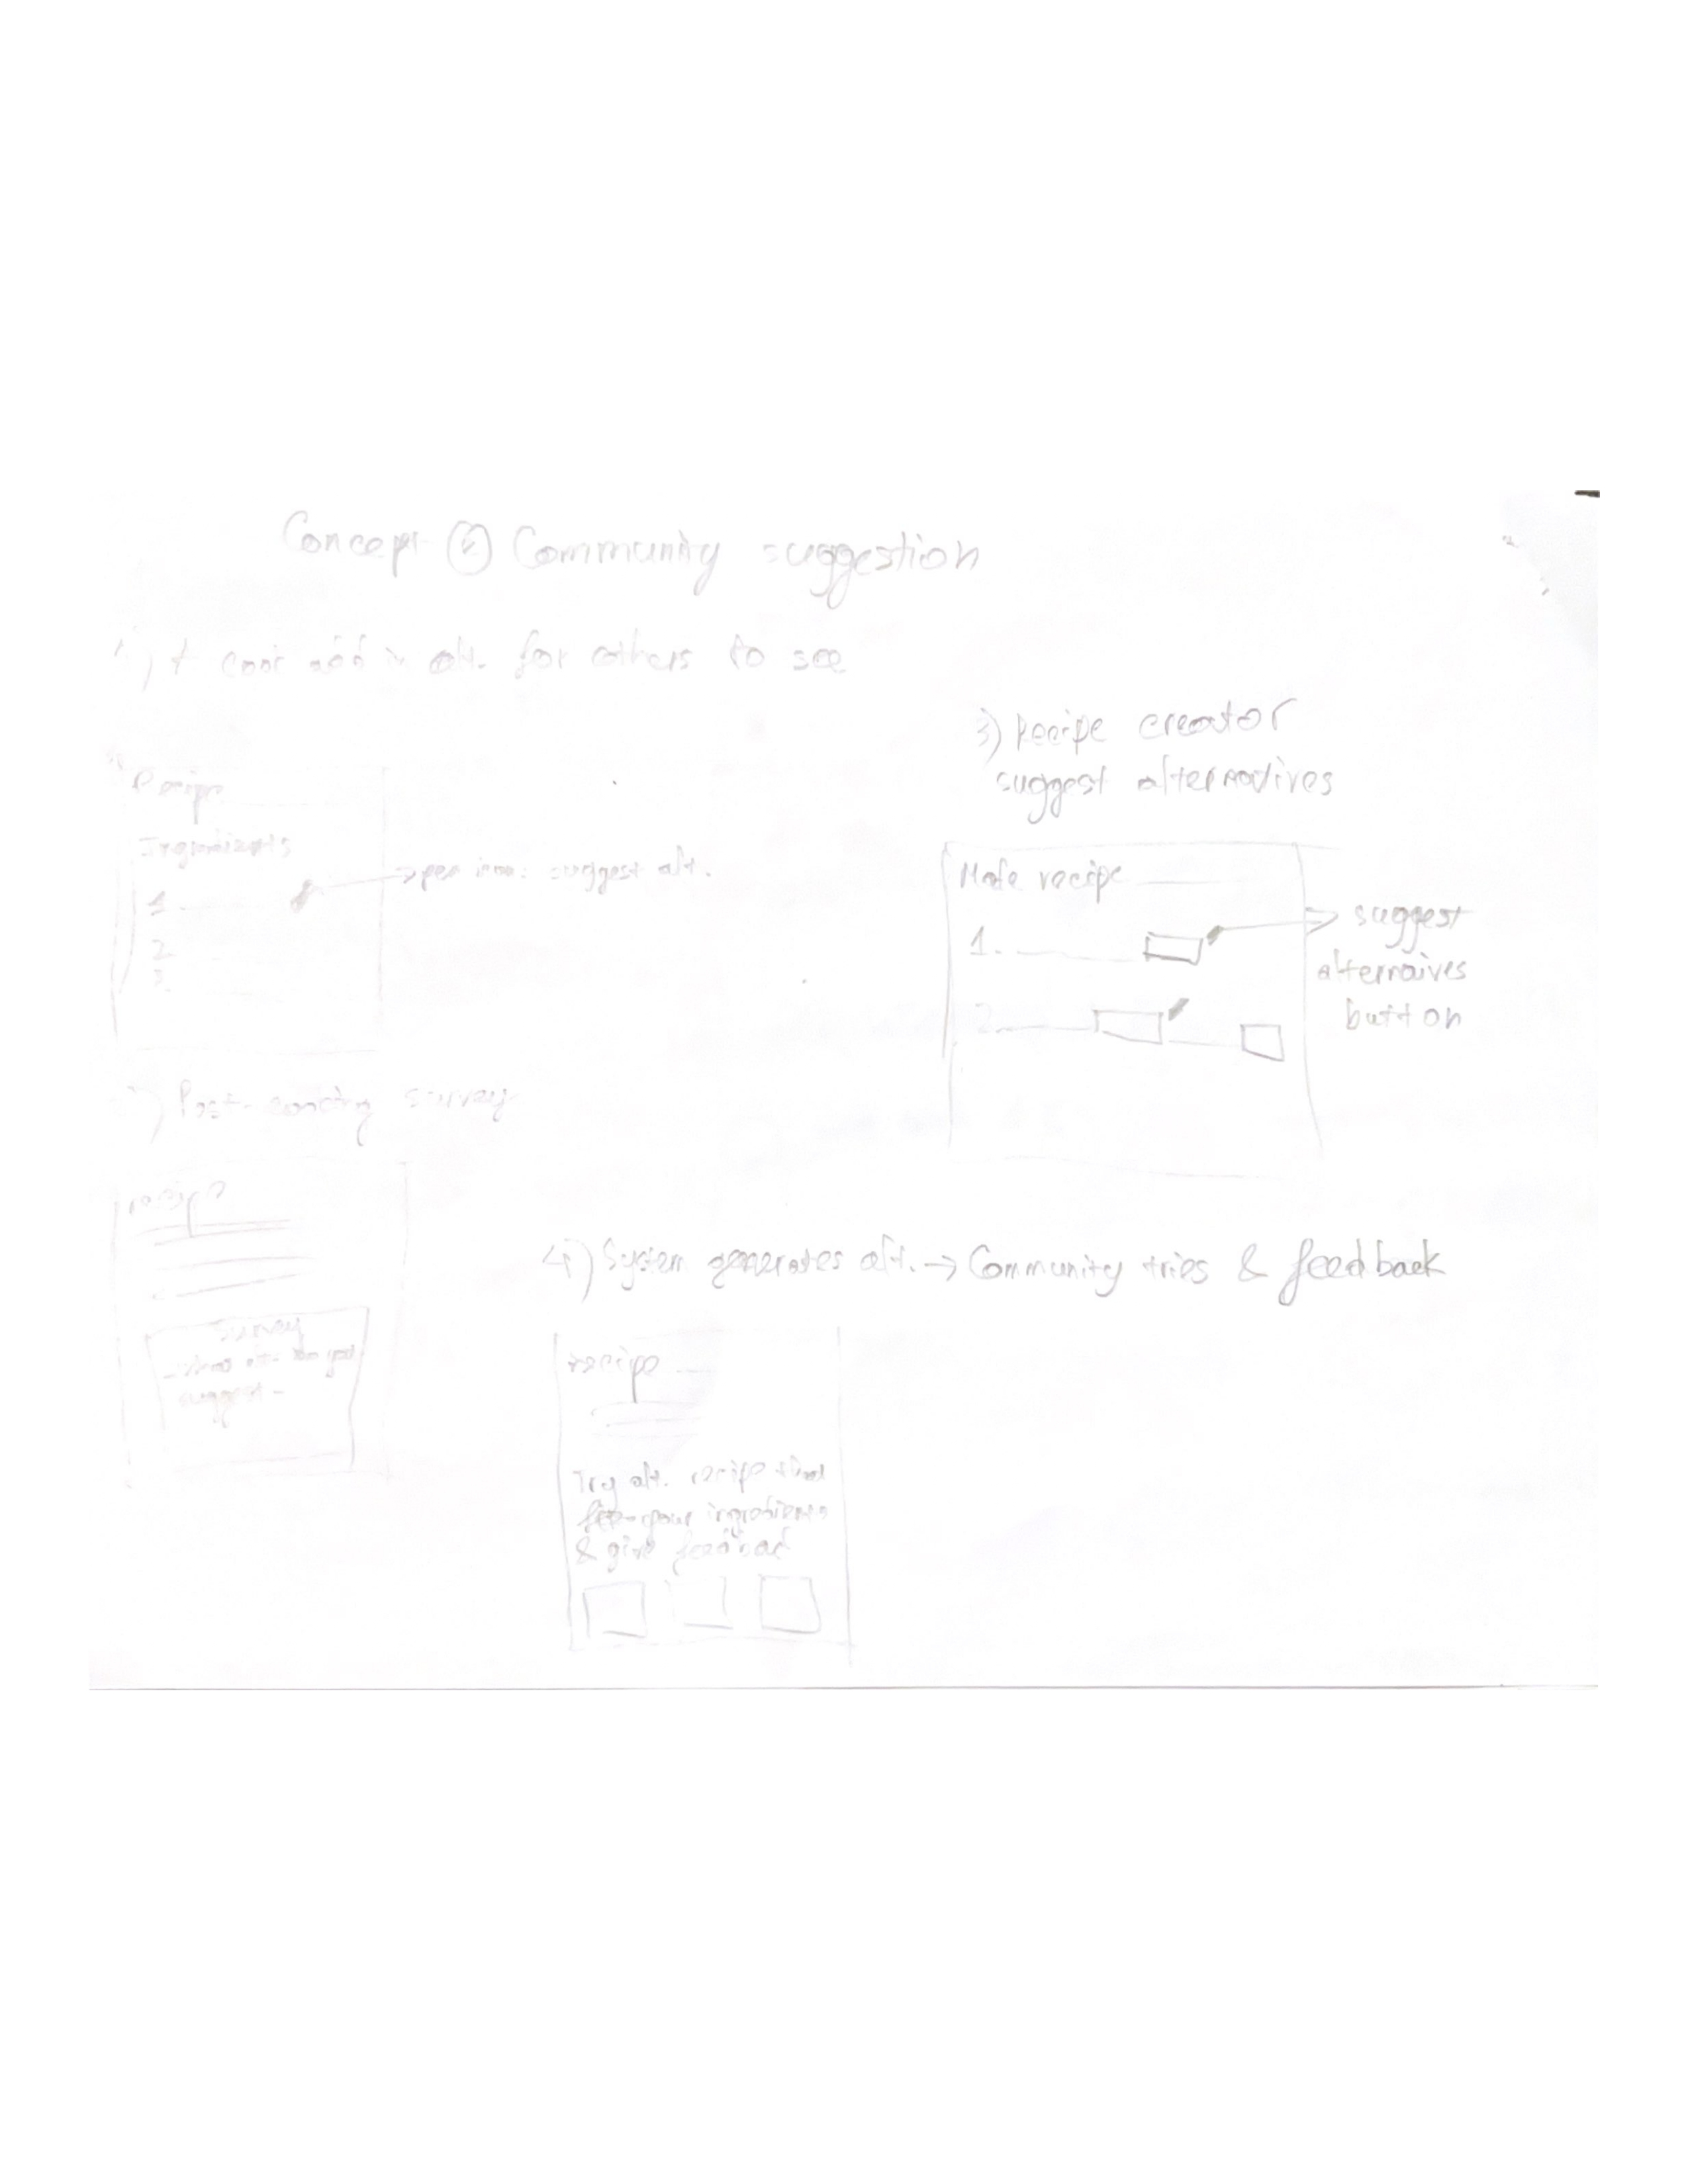 Concept ② Community suggestion
1) add in alt. for others to see
Recipe
Ingredients
1
2
3
→ pen icon: suggest alt.
2) Post- survey
recipe
Survey
suggest -
3) Recipe creator
suggest alternatives
Make recipe
1.
2.
suggest
alternaives
button
4) System generates alt. → Community tries & feedback
recipe
Try alt. recipe that
your ingredients
& give feedback